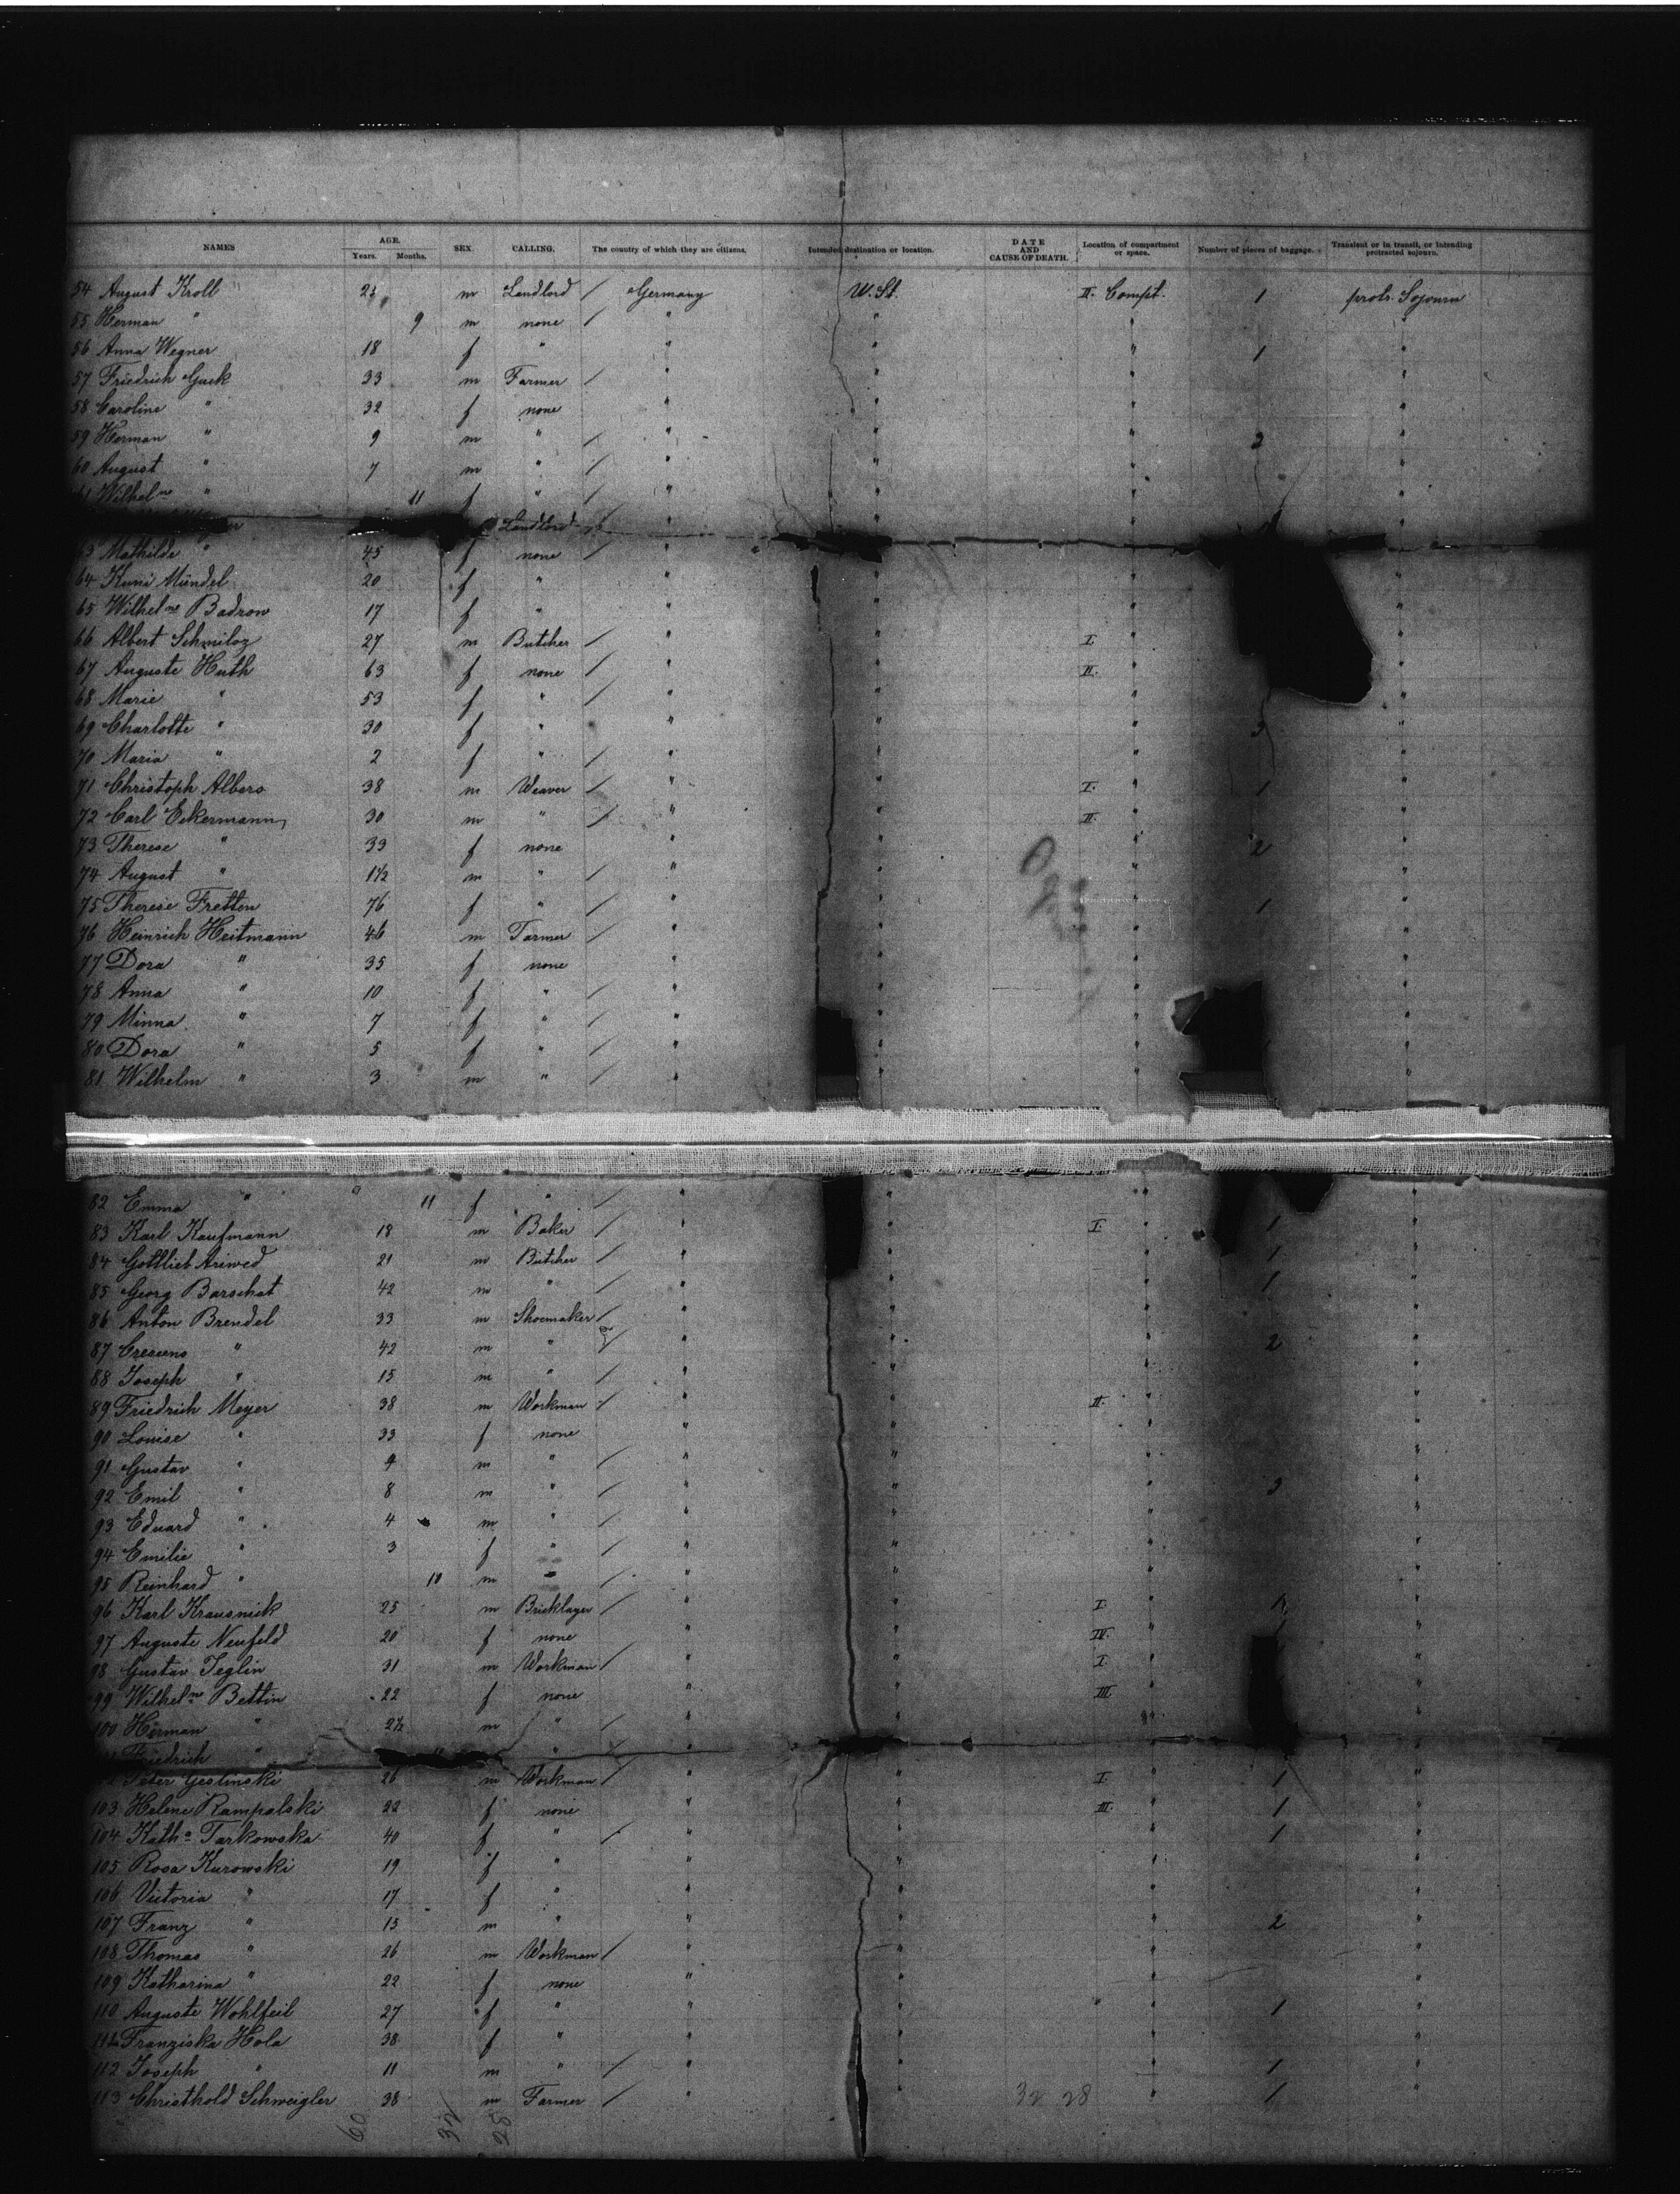 NAMES AGE. Years. Months. SEX. CALLING. The country of which they are citizens. Intended destination or location. DATE AND CAUSE OF DEATH. Location of compartment or space. Number of pieces of baggage. Transient or in transit, or intending protracted sojourn.
54 August Kroll " 23 m Landlord / Germany W. St. II. Compt. 1 protr. Sojourn
55 Herman " 9 m none / " " " "
56 Anna Wegner 18 f " " " " 1 "
57 Friedrich Guck 33 m Farmer / " " " "
58 Caroline " 32 f none " " " "
59 Herman " 9 m " / " " " 2 "
60 August " 7 m " / " " " "
61 Wilhelne " 11 f " / " " " "
Landlord "
63 Mathilde " 45 f none / " "
64 Kuni Mündel 20 f " " " " "
65 Wilhelne Badrow 17 f " " " " "
66 Albert Schmiloz 27 m Butcher / " " I. " "
67 Auguste Huth 63 f none / " " II. " "
68 Marie " 53 f " / " " " "
69 Charlotte " 30 f " " " " 3 "
70 Maria " 2 f " / " " " "
71 Christoph Albers 38 m Weaver / " " I. " 1 "
72 Carl Eckermann 30 m " / " " II. " "
73 Therese " 33 f none " " " 2 "
74 August " 1½ m " / " " " "
75 Therese Fretten 76 f " / " " " 1 "
76 Heinrich Heitmann 46 m Farmer / " " " "
77 Dora " 35 f none " " " "
78 Anna " 10 f " / " " " "
79 Minna " 7 f " / " " " "
80 Dora " 5 f " / " " " "
81 Wilhelm " 3 m " / " " " "
82 Emma " 11 f " / " " " "
83 Karl Kaufmann 18 m Baker / " " I. " 1 "
84 Gottlieb Ariwed 21 m Butcher / " " " 1 "
85 Georg Barschat 42 m " / " " " 1 "
86 Anton Brendel 33 m Shoemaker / " " " "
87 Crescens " 42 m " / " " " 2 "
88 Joseph " 15 m " / " " " "
89 Friedrich Meyer 38 m Workman / " " II. " "
90 Louise " 33 f none " " " "
91 Gustav " 9 m " / " " " "
92 Emil " 8 m " / " " " 3 "
93 Eduard " 4 m " / " " " "
94 Emilie " 3 f " / " " " "
95 Reinhard " 10 m " / " " " "
96 Karl Krausnick 25 m Bricklayer / " " I. " 1 "
97 Auguste Neufeld 20 f none " " IV. " "
98 Gustav Teglin 31 m Workman / " " I. " "
99 Wilhelne Bettin 22 f none " " III. " "
100 Herman " 2½ m " / " " " "
Friedrich " 11 " / " "
Peter Geslinski 26 m Workman / " " I. " 1 "
103 Helene Rampalski 22 f none " " III. " 1 "
104 Katha Tarkowska 40 f " / " " " 1 "
105 Rosa Kurowski 19 f " " " " "
106 Victoria " 17 f " " " " "
107 Franz " 15 m " " " " 2 "
108 Thomas " 26 m Workman / " " " "
109 Katharina " 22 f none " " " "
110 Auguste Wohlfeil 27 f " " " " 1 "
111 Franziska Hola 38 f " " " " "
112 Joseph " 11 m " / " " " 1 "
113 Christhold Schweigler 38 m Farmer / " " 32 28 " 1 "
60 32 28